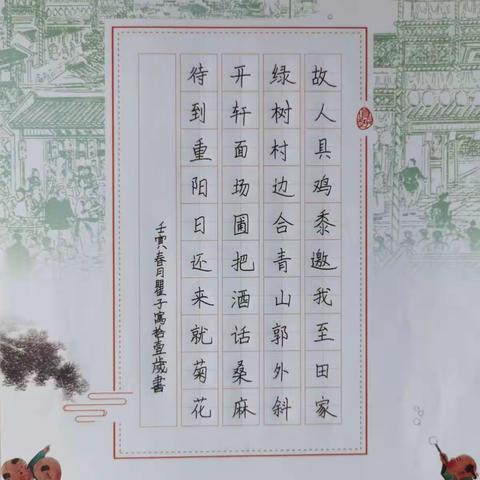 故人具鸡黍邀我至田家
绿树村边合青山郭外斜
开轩面场圃把酒话桑麻
待到重阳日还来就菊花
壬寅春月瞿子寓拾壹歲書